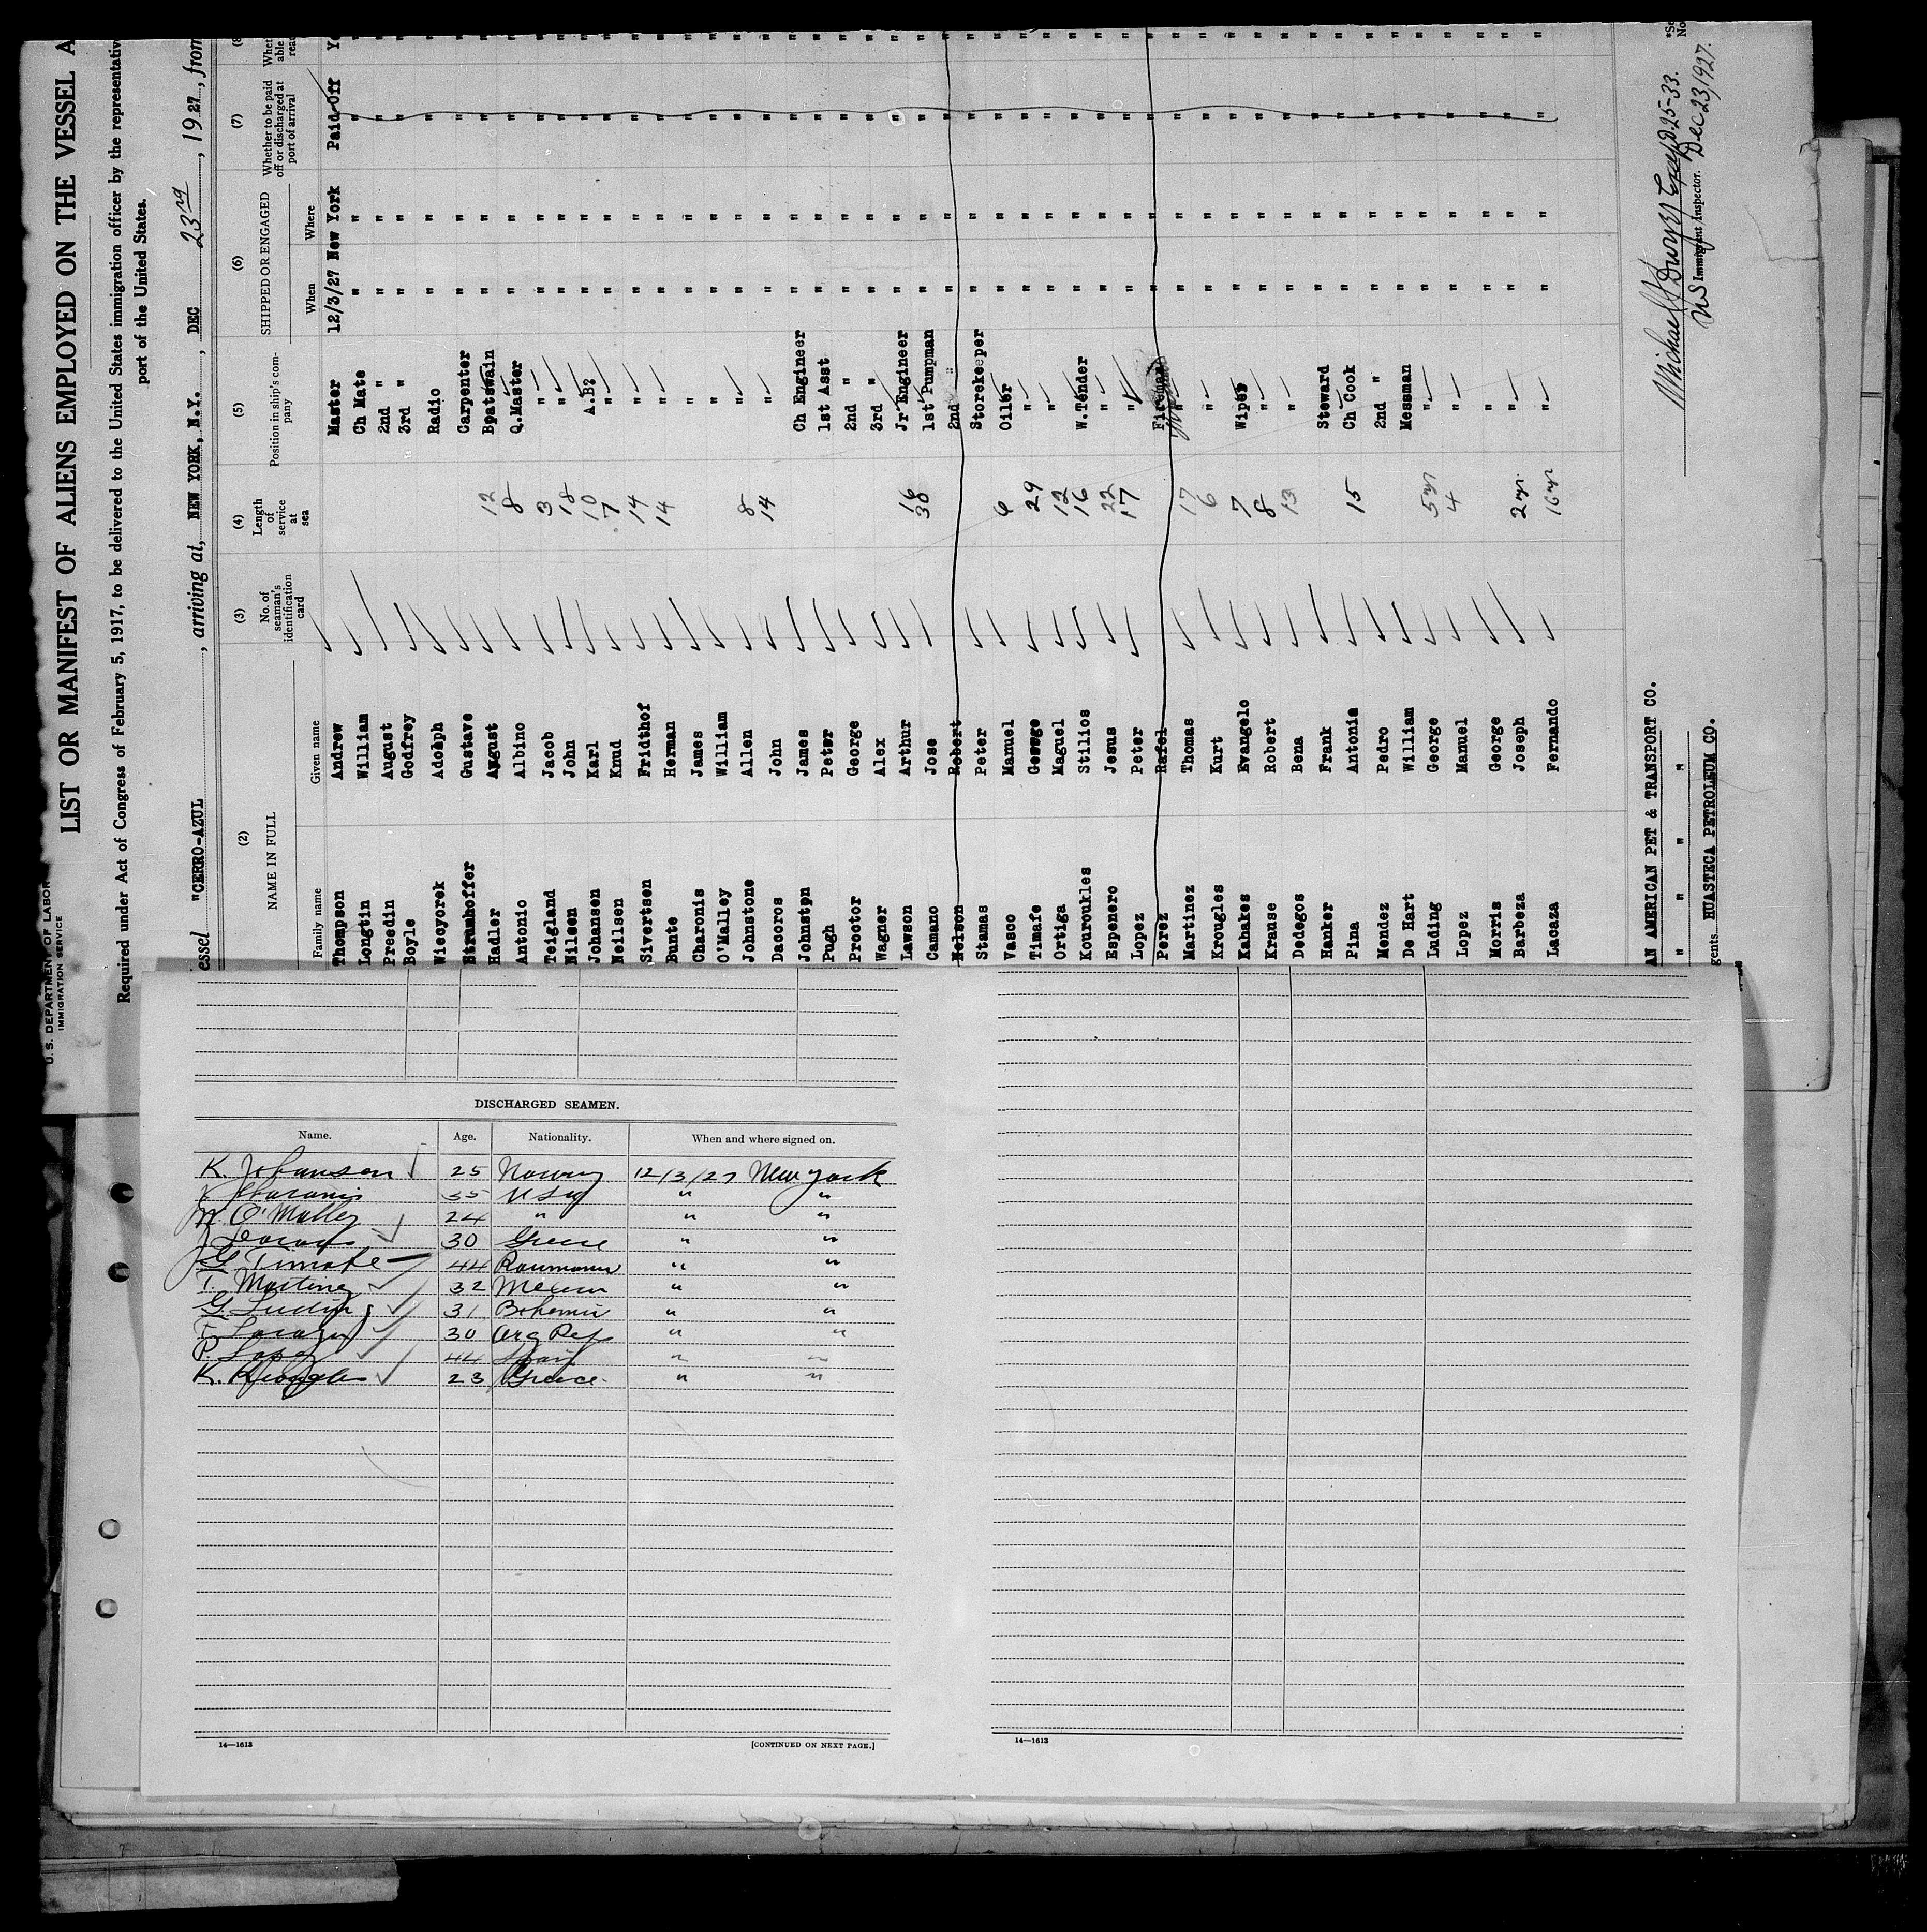 U. S. DEPARTMENT OF LABOR
IMMIGRATION SERVICE
LIST OR MANIFEST OF ALIENS EMPLOYED ON THE VESSEL A
Required under Act of Congress of February 5, 1917, to be delivered to the United States immigration officer by the representativ
port of the United States.
essel "CERRO-AZUL , arriving at, NEW YORK, N.Y. , DEC 23rd , 1927, from
(2) (3) (4) (5) (6) (7) (8
NAME IN FULL No. of seaman's identification card Length of service at sea Position in ship's company SHIPPED OR ENGAGED Whether to be paid off or discharged at port of arrival Whet able rea
Family name Given name When Where
Thompson Andrew Master 12/3/27 New York Paid Off Ye
Longtin William Ch Mate " " " "
Preedin August 2nd " " " " "
Boyle Godfrey 3rd " " " " "
Wiecyorek Adolph Radio " " " "
Stramhoffer Gustave Carpenter " " " "
Hadler August 12 Boatswain " " " "
Antonio Albino 8 Q.Master " " " "
Teigland Jacob 3 " " " " "
Nilsen John 18 " " " " "
Johansen Karl 10 A.B? " " " "
Neilsen Knud 7 " " " " "
Sivertsen Fridthof 14 " " " " "
Bunte Herman 14 " " " " "
Charonis James " " " " "
O'Malley William " " " " "
Johnstone Allen 8 " " " " "
Dacoros John 14 " " " " "
Johnston James Ch Engineer " " " "
Pugh Peter 1st Asst " " " "
Proctor George 2nd " " " " "
Wagner Alex 3rd " " " " "
Lawson Arthur 16 Jr Engineer " " " "
Camano Jose 30 1st Pumpman " " " "
Nelson Robert 2nd " " " " "
Stamas Peter Storekeeper " " " "
Vasco Manuel 6 Oiler " " " "
Timafe George 29 " " " " "
Ortiga Maguel 12 " " " " "
Kouroukles Stilios 16 W.Tender " " " "
Espenero Jesus 22 " " " " "
Lopez Peter 17 " " " " "
Perez Rafel Fireman " " " "
Martinez Thomas 17 " " " " "
Krougles Kurt 6 " " " " "
Kabakes Evangelo 7 Wiper " " " "
Krause Robert 8 " " " " "
Dedegos Bena 13 " " " " "
Hanker Frank Steward " " " "
Pina Antonia 15 Ch Cook " " " "
Mendez Pedro 2nd " " " " "
De Hart William Messman " " " "
Luding George 5 yr " " " " "
Lopez Manuel 4 " " " " "
Morris George " " " " "
Barbeza Joseph 2 yr. " " " " "
Lacaza Fernando 16 yr " " " " "
AN AMERICAN PET & TRANSPORT CO.
" " " "
gents HUASTECA PETROLEUM CO.
Michael Dwyer D.25-33.
US Immigrant Inspector. Dec 23, 1927.
*Se
No
DISCHARGED SEAMEN.
Name. Age. Nationality. When and where signed on.
K. Johansen 25 Norway 12/3/27 New York
J Charonis 35 U S " "
W. O'Malley 24 " " "
J Dacoros 30 Greece " "
G Timafe 44 Roumania " "
T. Martinez 32 Mexico " "
G. Luding 31 Bohemia " "
F. Lacaza 30 Arg Rep " "
P. Lopez 44 Spain " "
K. Krougles 23 Greece " "
14—1613 [CONTINUED ON NEXT PAGE.]
14—1613